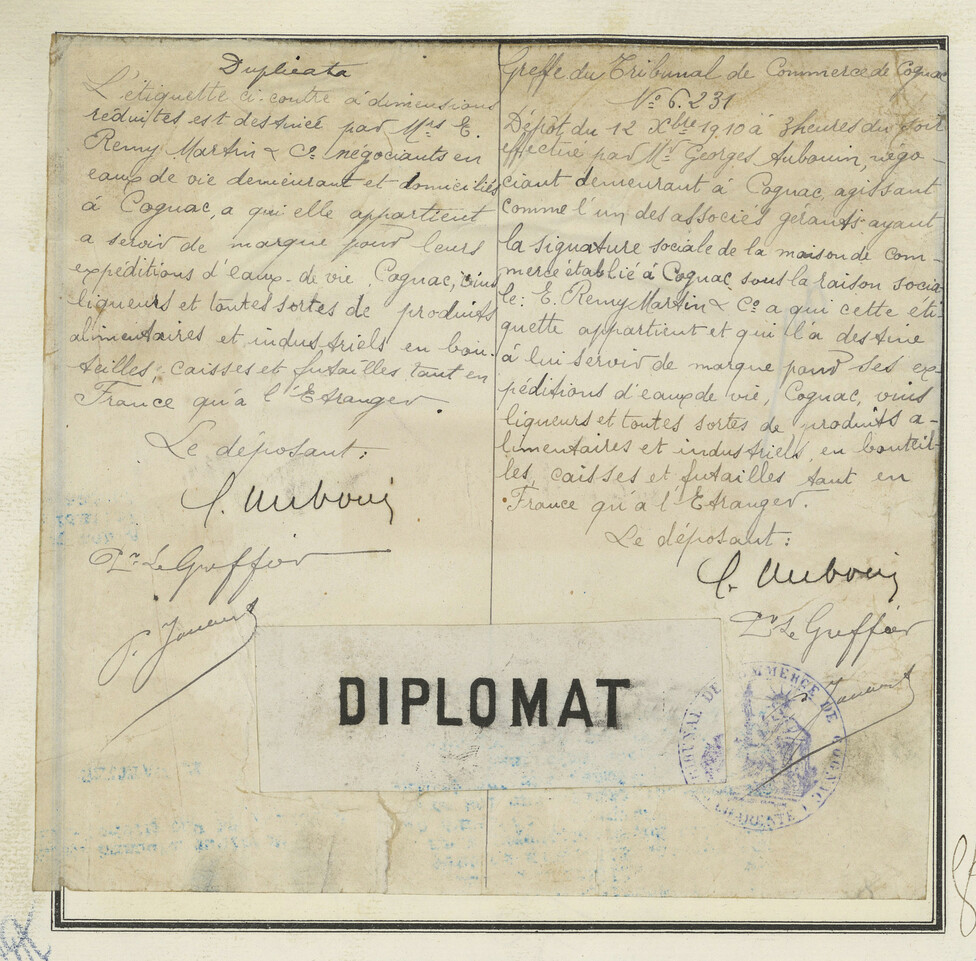 Duplicata
L'étiquette ci-contre à dimensions
réduites est destinée par Mrs E.
Remy Martin & Cº négociants en
eaux de vie demeurant et domiciliés
à Cognac, a qui elle appartient
a servir de marque pour leurs
expéditions d'eaux-de vie, Cognac, vins
liqueurs et toutes sortes de produits
alimentaires et industriels en bou-
teilles, caisses et futailles tant en
France qu'à l'Etranger.
Le déposant:
G. Aubouin
Pr Le Greffier
Greffe du Tribunal de Commerce de Cognac
Nº 6.231
Dépôt du 12 Xbre 1910 à 3 heures du soir
effectué par Mr Georges Aubouin, négo-
ciant demeurant à Cognac, agissant
comme l'un des associés gérants ayant
la signature sociale de la maison de com-
merce établie à Cognac sous la raison socia-
le: E. Remy Martin & Cº a qui cette éti-
quette appartient et qui l'a destine
à lui servir de marque pour ses ex-
péditions d'eaux de vie, Cognac, vins
liqueurs et toutes sortes de produits a-
limentaires et industriels, en bouteil-
les, caisses et futailles tant en
France qu'à l'Etranger.
Le déposant:
G. Aubouin
Pr Le Greffier
DIPLOMAT
TRIBUNAL DE COMMERCE DE COGNAC
CHARENTE